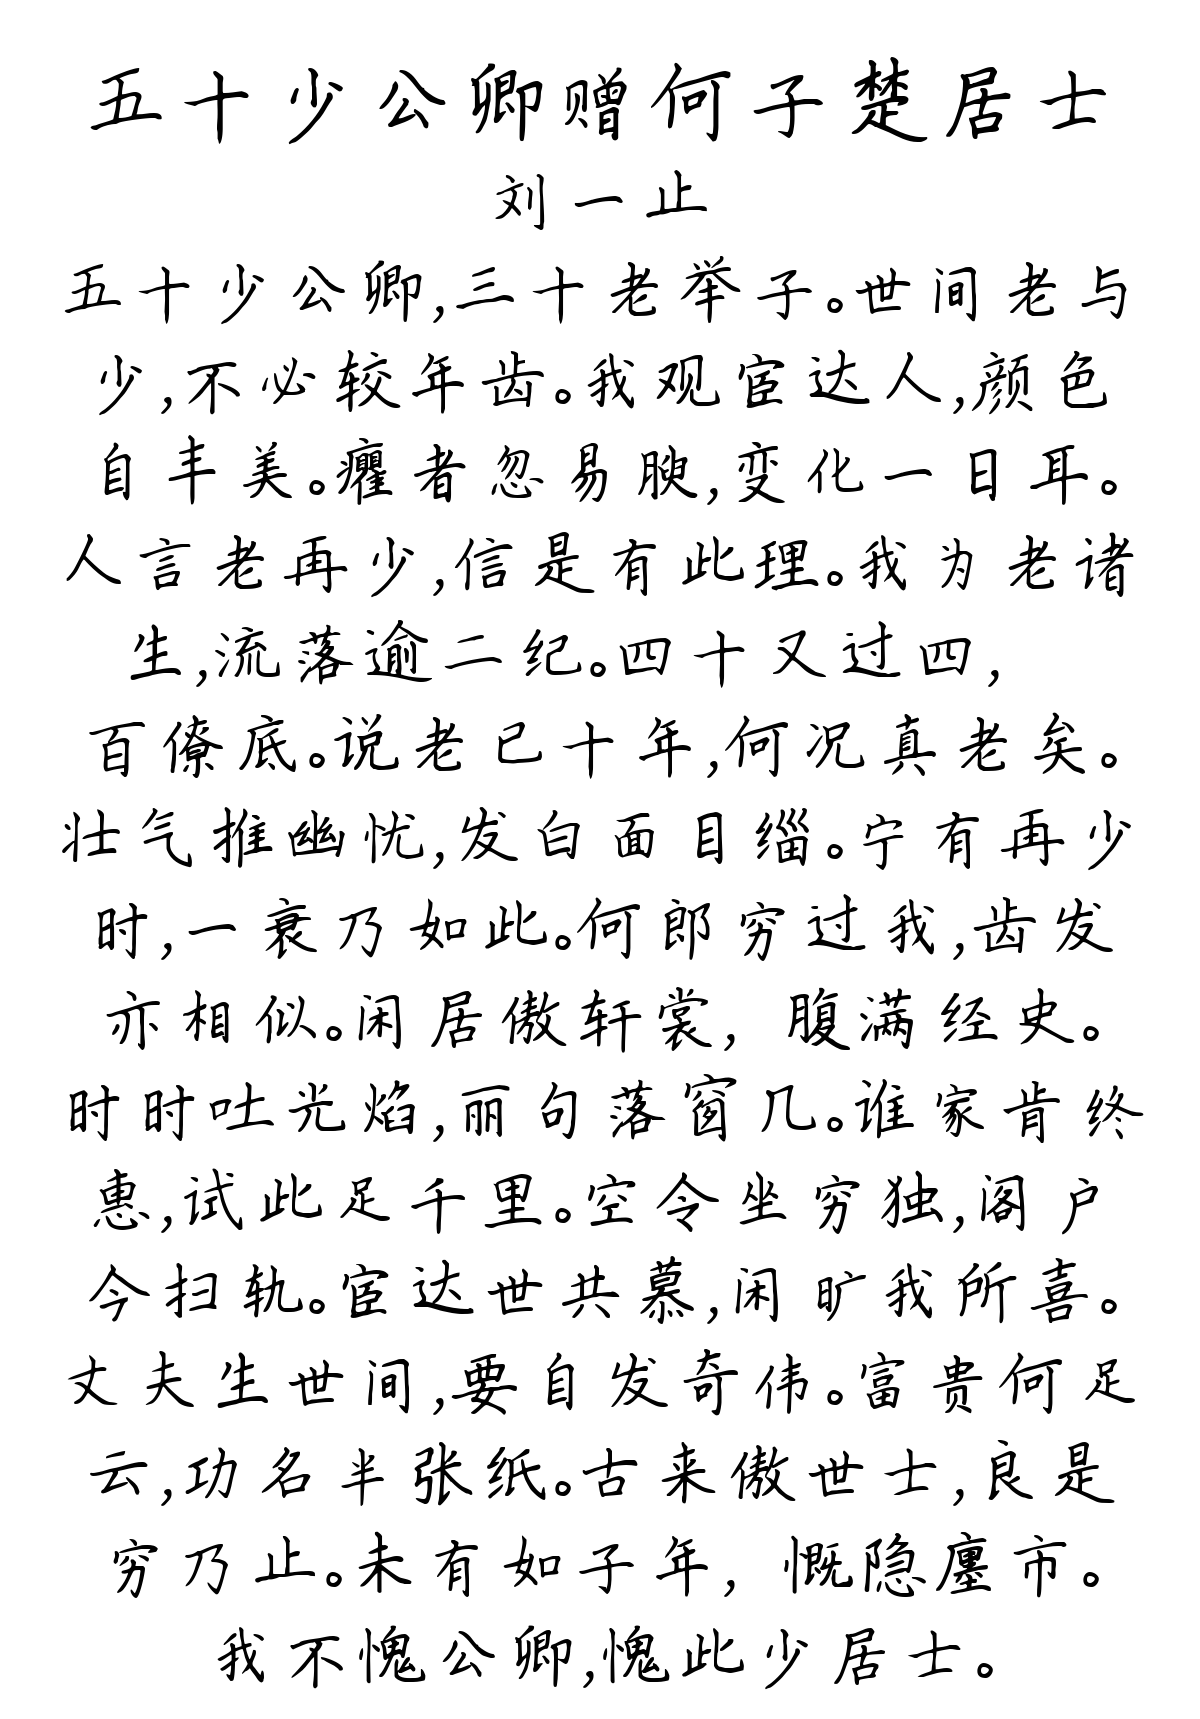 五十少公卿赠何子楚居士
刘一止
五十少公卿,三十老举子。世间老与
少,不必较年齿。我观宦达人,颜色
自丰美。癯者忽易腴,变化一日耳。
人言老再少,信是有此理。我为老诸
生,流落逾二纪。四十又过四,
百僚底。说老已十年,何况真老矣。
壮气推幽忧,发白面目缁。宁有再少
时,一衰乃如此。何郎穷过我,齿发
亦相似。闲居傲轩裳, 腹满经史。
时时吐光焰,丽句落窗几。谁家肯终
惠,试此足千里。空令坐穷独,阁户
今扫轨。宦达世共慕,闲旷我所喜。
丈夫生世间,要自发奇伟。富贵何足
云,功名半张纸。古来傲世士,良是
穷乃止。未有如子年, 慨隐廛市。
我不愧公卿,愧此少居士。